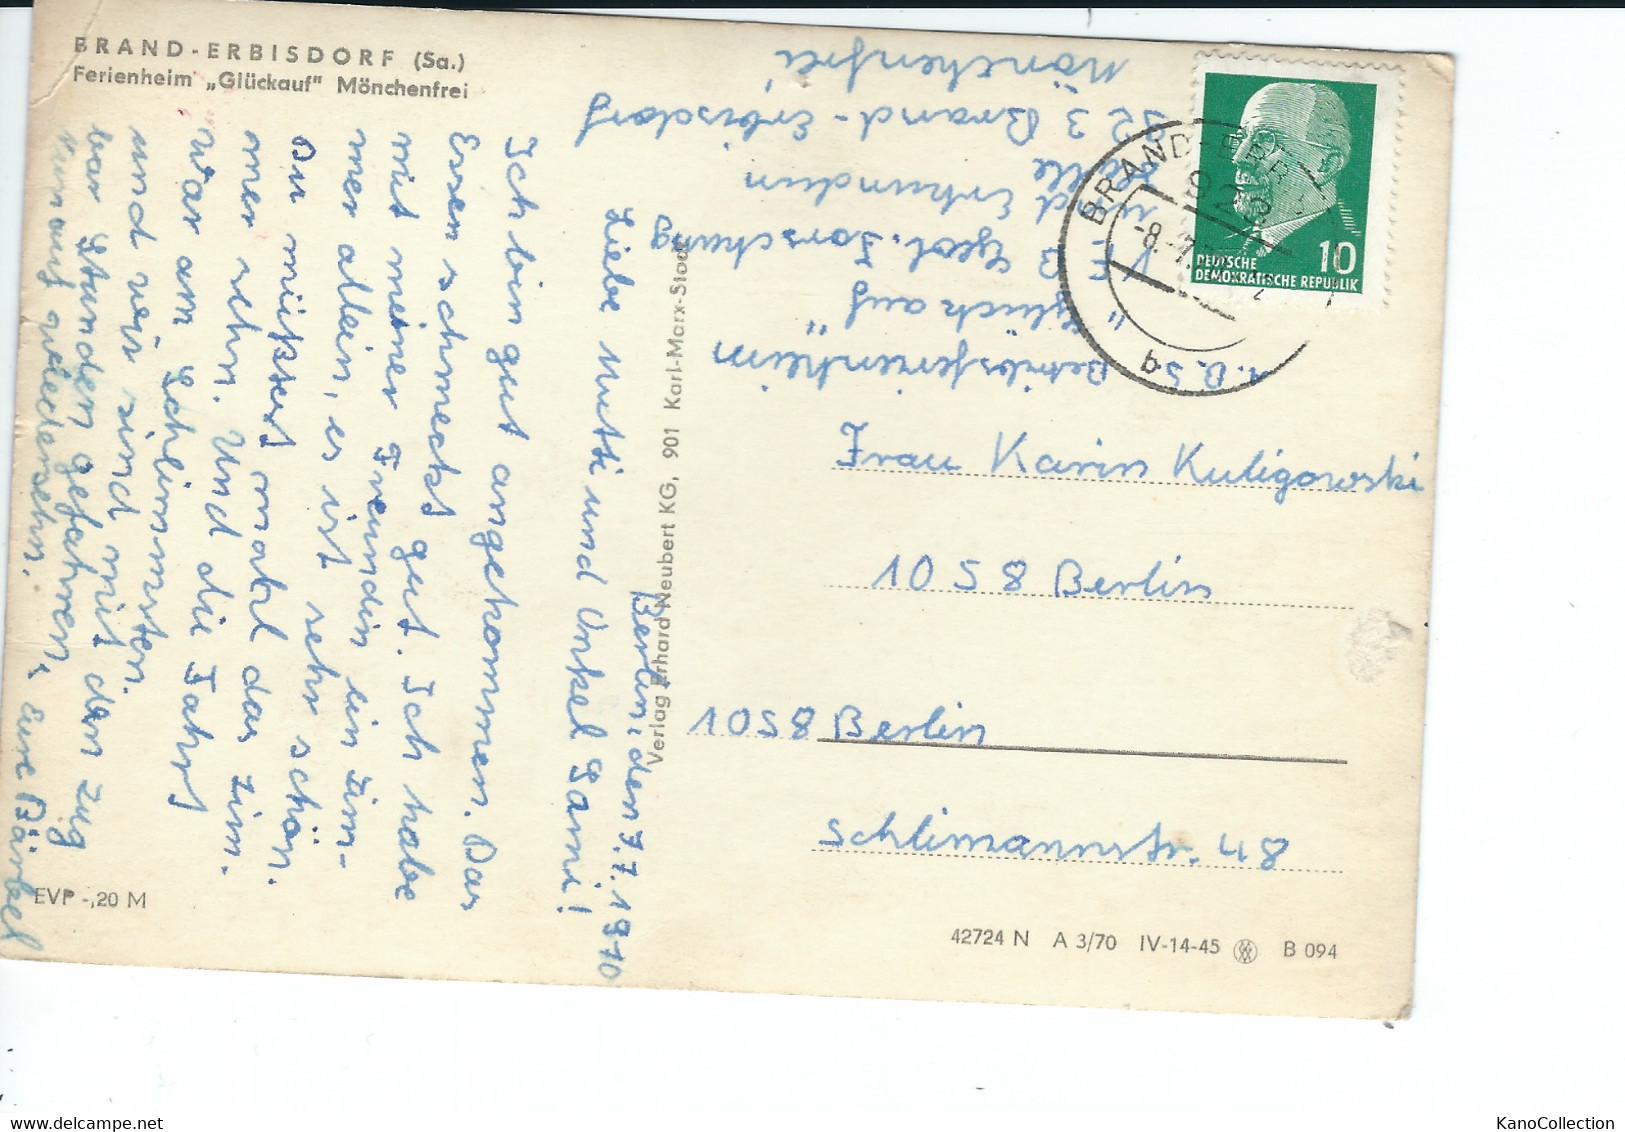 BRAND-ERBISDORF (Sa.)
Ferienheim „Glückauf" Mönchenfrei
Berlin, den 7.7.1970
Liebe Mutti und Onkel Sami!
Ich bin gut angekommen. Das
Essen schmeckt gut. Ich habe
mit meiner Freundin ein Zim-
mer allein, es ist sehr schön.
Du müsstest mahl das Zim-
mer sehn. Und die Fahrt
War am Schlimmsten.
und wir sind mit dem Zug
Stunden gefahren,
nun auf wiedersehn. Eure Bärbel
EVP -,20 M
Verlag Erhard Neubert KG, 901 Karl-Marx-Stadt
Betriebsferienheim
"Glück auf"
B Geol. Forschung
und Erkundun
Halle
92 3 Brand-Erbisdorf
Mönchenfrei
BRAND-ERB
923
-8.-7.
a
10
DEUTSCHE
DEMOKRATISCHE REPUBLIK
Frau Karin Kuligowski
1058 Berlin
1058 Berlin
Schlimannstr. 48
42724 N A 3/70 IV-14-45 B 094
KanoCollection